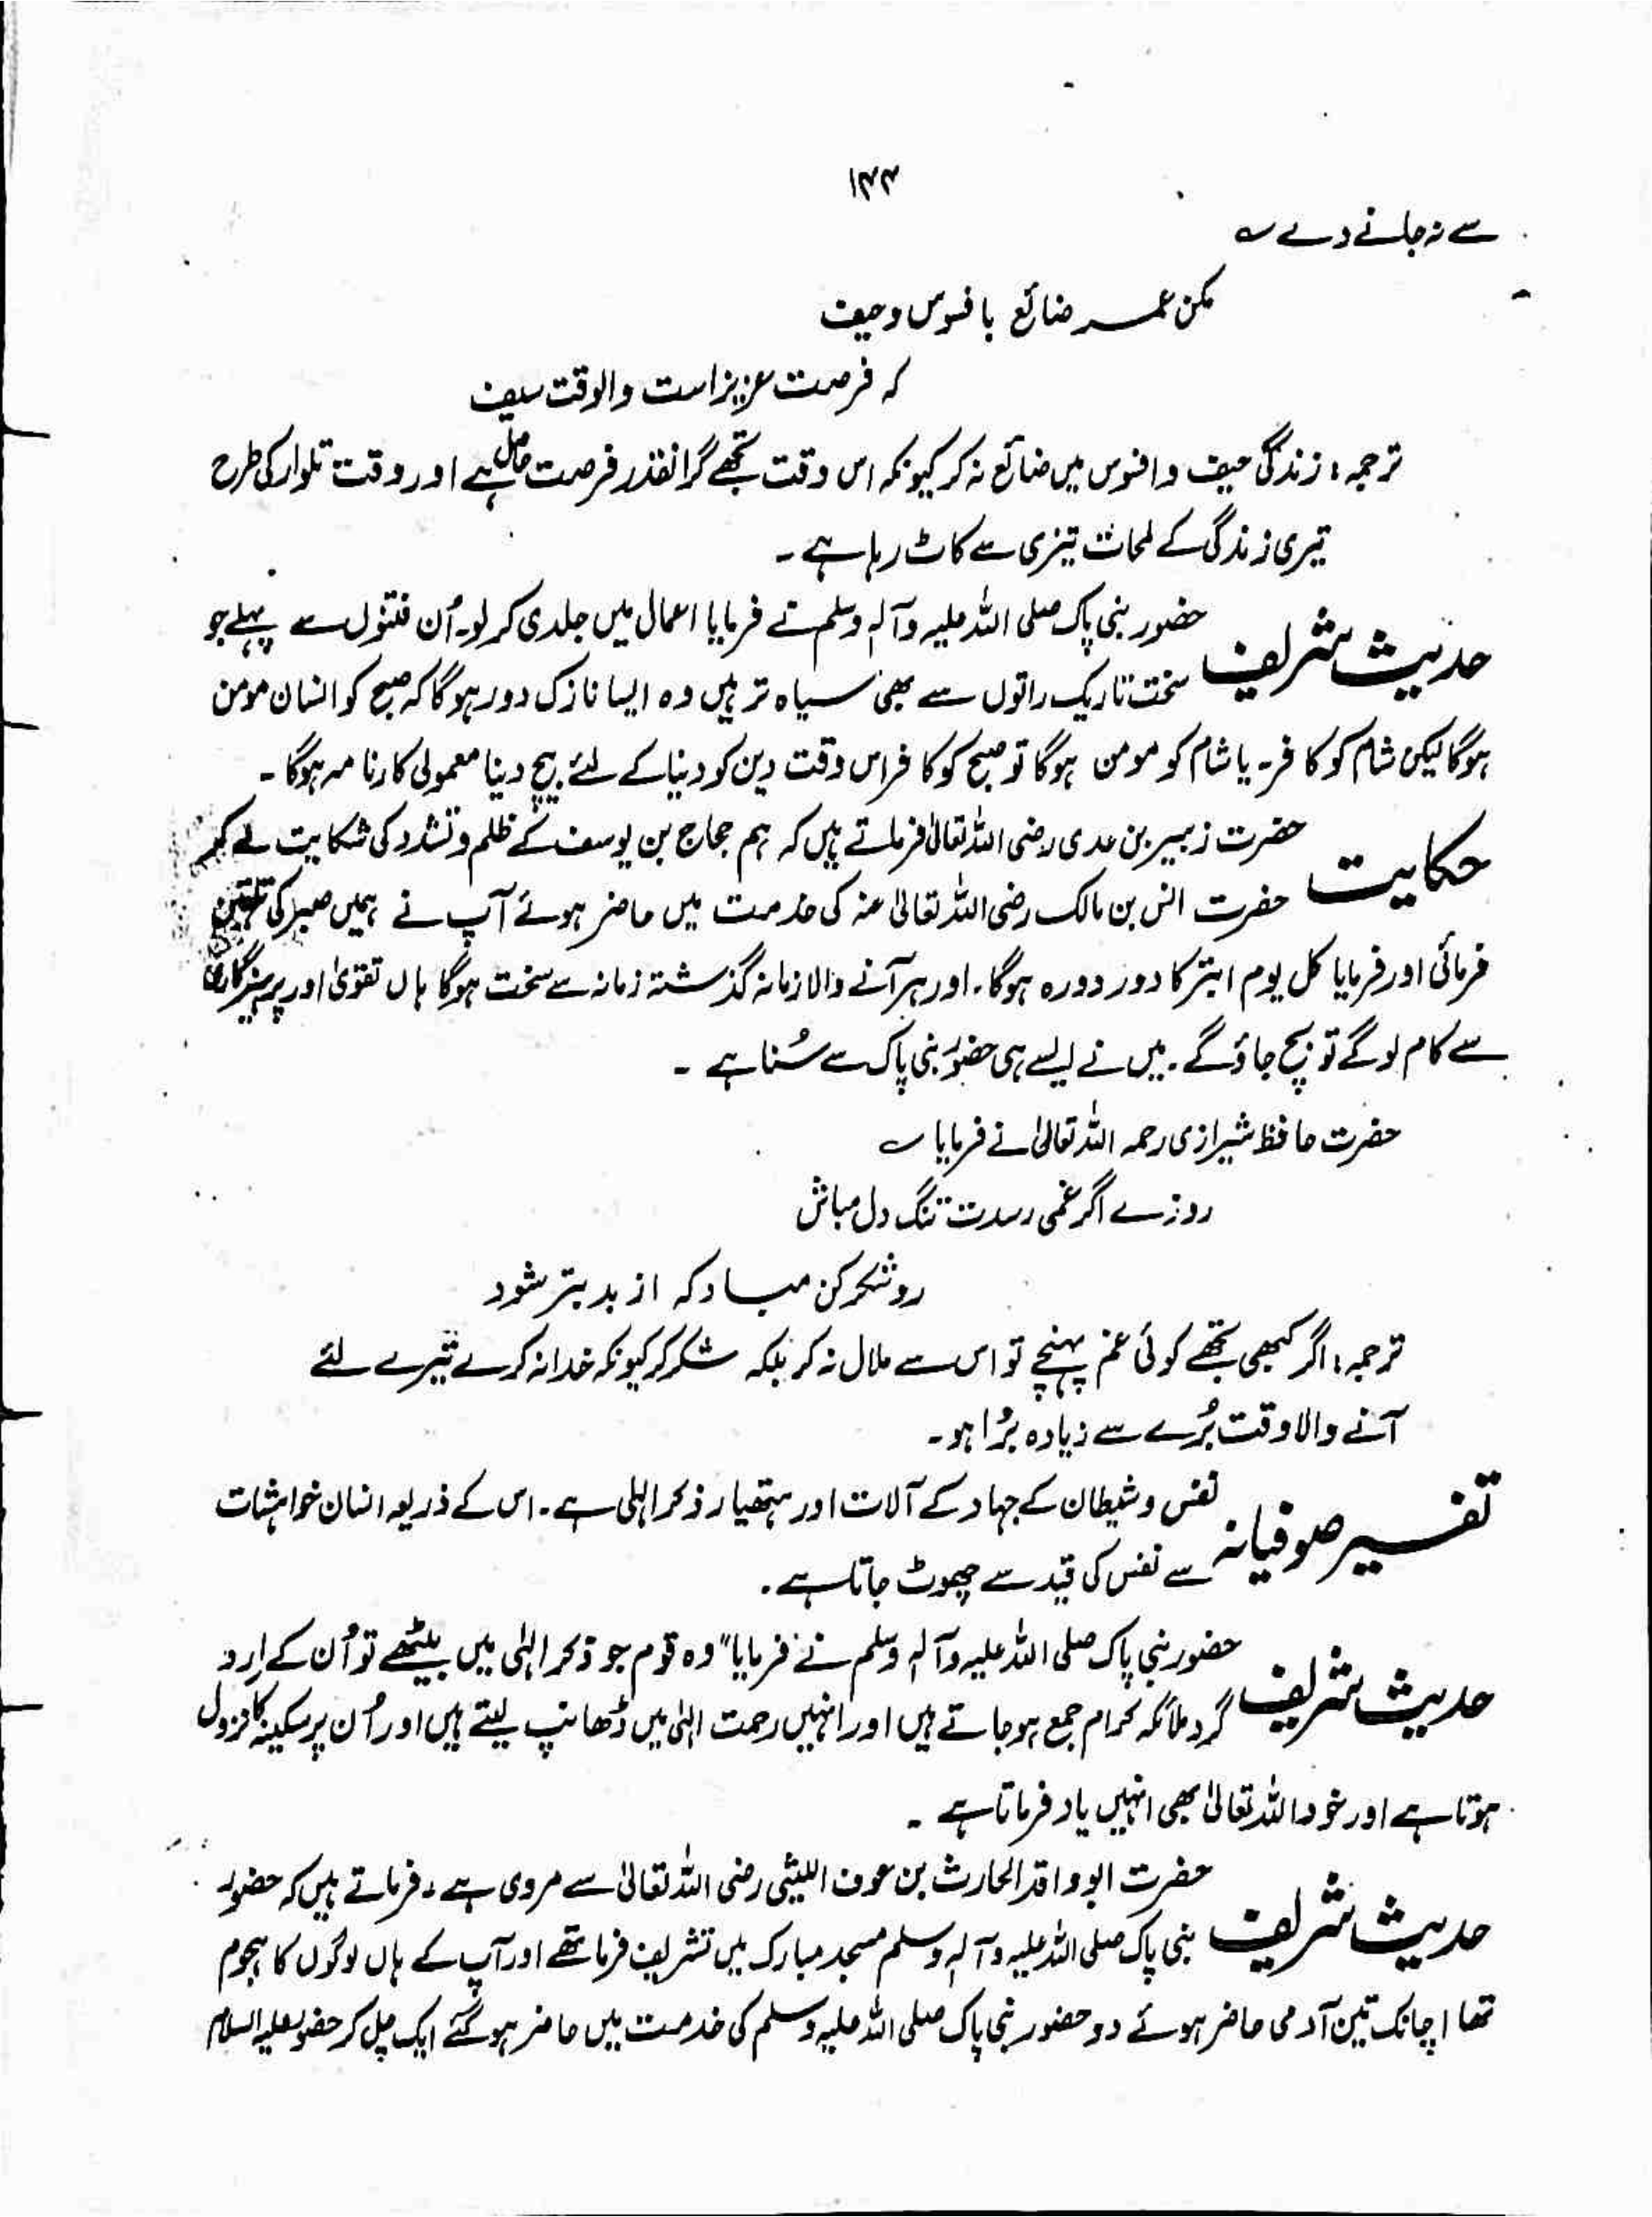 ۱۴۴
سے نہ جانے دے ؎
مکن عمر ضائع بافسوس وحیف
کہ فرصت عزیز است والوقت سیف
ترجمہ : زندگی حیف و افسوس میں ضائع نہ کر کیونکہ اس وقت تجھے گرانقذر فرصت حاصل ہے اور وقت تلوار کی طرح
تیری زندگی کے لمحات تیزی سے کاٹ رہا ہے ۔
حدیث شریف حضور نبی پاک صلی اللہ علیہ وآلہٖ وسلم نے فرمایا اعمال میں جلدی کر لو۔ اُن فتنوں سے پہلے جو
سخت تاریک راتوں سے بھی سیاہ تر ہیں وہ ایسا نازک دور ہوگا کہ صبح کو انسان مومن
ہوگا لیکن شام کو کافر۔ یا شام کو مومن ہوگا تو صبح کو کافر اس وقت دین کو دنیا کے لئے بیچ دینا معمولی کارنامہ ہوگا ۔
حکایت حضرت زبیر بن عدی رضی اللہ تعالیٰ فرماتے ہیں کہ ہم حجاج بن یوسف کے ظلم و تشدد کی شکایت لے کر
حضرت انس بن مالک رضی اللہ تعالیٰ عنہ کی خدمت میں حاضر ہوئے آپ نے ہمیں صبر کی تلقین
فرمائی اور فرمایا کل یوم ابتر کا دور دورہ ہوگا۔ اور ہر آنے والا زمانہ گذشتہ زمانہ سے سخت ہوگا ہاں تقویٰ اور پرہیزگاری
سے کام لو گے تو بچ جاؤ گے ۔ میں نے ایسے ہی حضور نبی پاک سے سُنا ہے ۔
حضرت حافظ شیرازی رحمہ اللہ تعالیٰ نے فرمایا ؎
روزے اگر غمی رسدت تنگ دل مباش
رو شکر کن مباد کہ از بد بتر شود
ترجمہ : اگر کبھی تجھے کوئی غم پہنچے تو اس سے ملال نہ کر بلکہ شکر کر کیونکہ خدا نہ کرے تیرے لئے
آنے والا وقت بُرے سے زیادہ بُرا ہو ۔
تفسیر صوفیانہ نفس و شیطان کے جہاد کے آلات اور ہتھیار ذکر الہٰی ہے ۔ اس کے ذریعہ انسان خواہشات
سے نفس کی قید سے چھوٹ جاتا ہے ۔
حدیث شریف حضور نبی پاک صلی اللہ علیہ وآلہٖ وسلم نے فرمایا "وہ قوم جو ذکر الہٰی میں بیٹھے تو اُن کے ارد
گرد ملائکہ کرام جمع ہو جاتے ہیں اور انہیں رحمت الہٰی میں ڈھانپ لیتے ہیں اور اُن پر سکینہ کا نزول
ہوتا ہے اور خود اللہ تعالیٰ بھی انہیں یاد فرماتا ہے ۔
حدیث شریف حضرت ابو واقد الحارث بن عوف اللیثی رضی اللہ تعالیٰ سے مروی ہے ، فرماتے ہیں کہ حضور
نبی پاک صلی اللہ علیہ وآلہٖ وسلم مسجد مبارک میں تشریف فرما تھے اور آپ کے ہاں لوگوں کا ہجوم
تھا اچانک تین آدمی حاضر ہوئے دو حضور نبی پاک صلی اللہ علیہ وسلم کی خدمت میں حاضر ہو گئے ایک چل کر حضور علیہ السلام